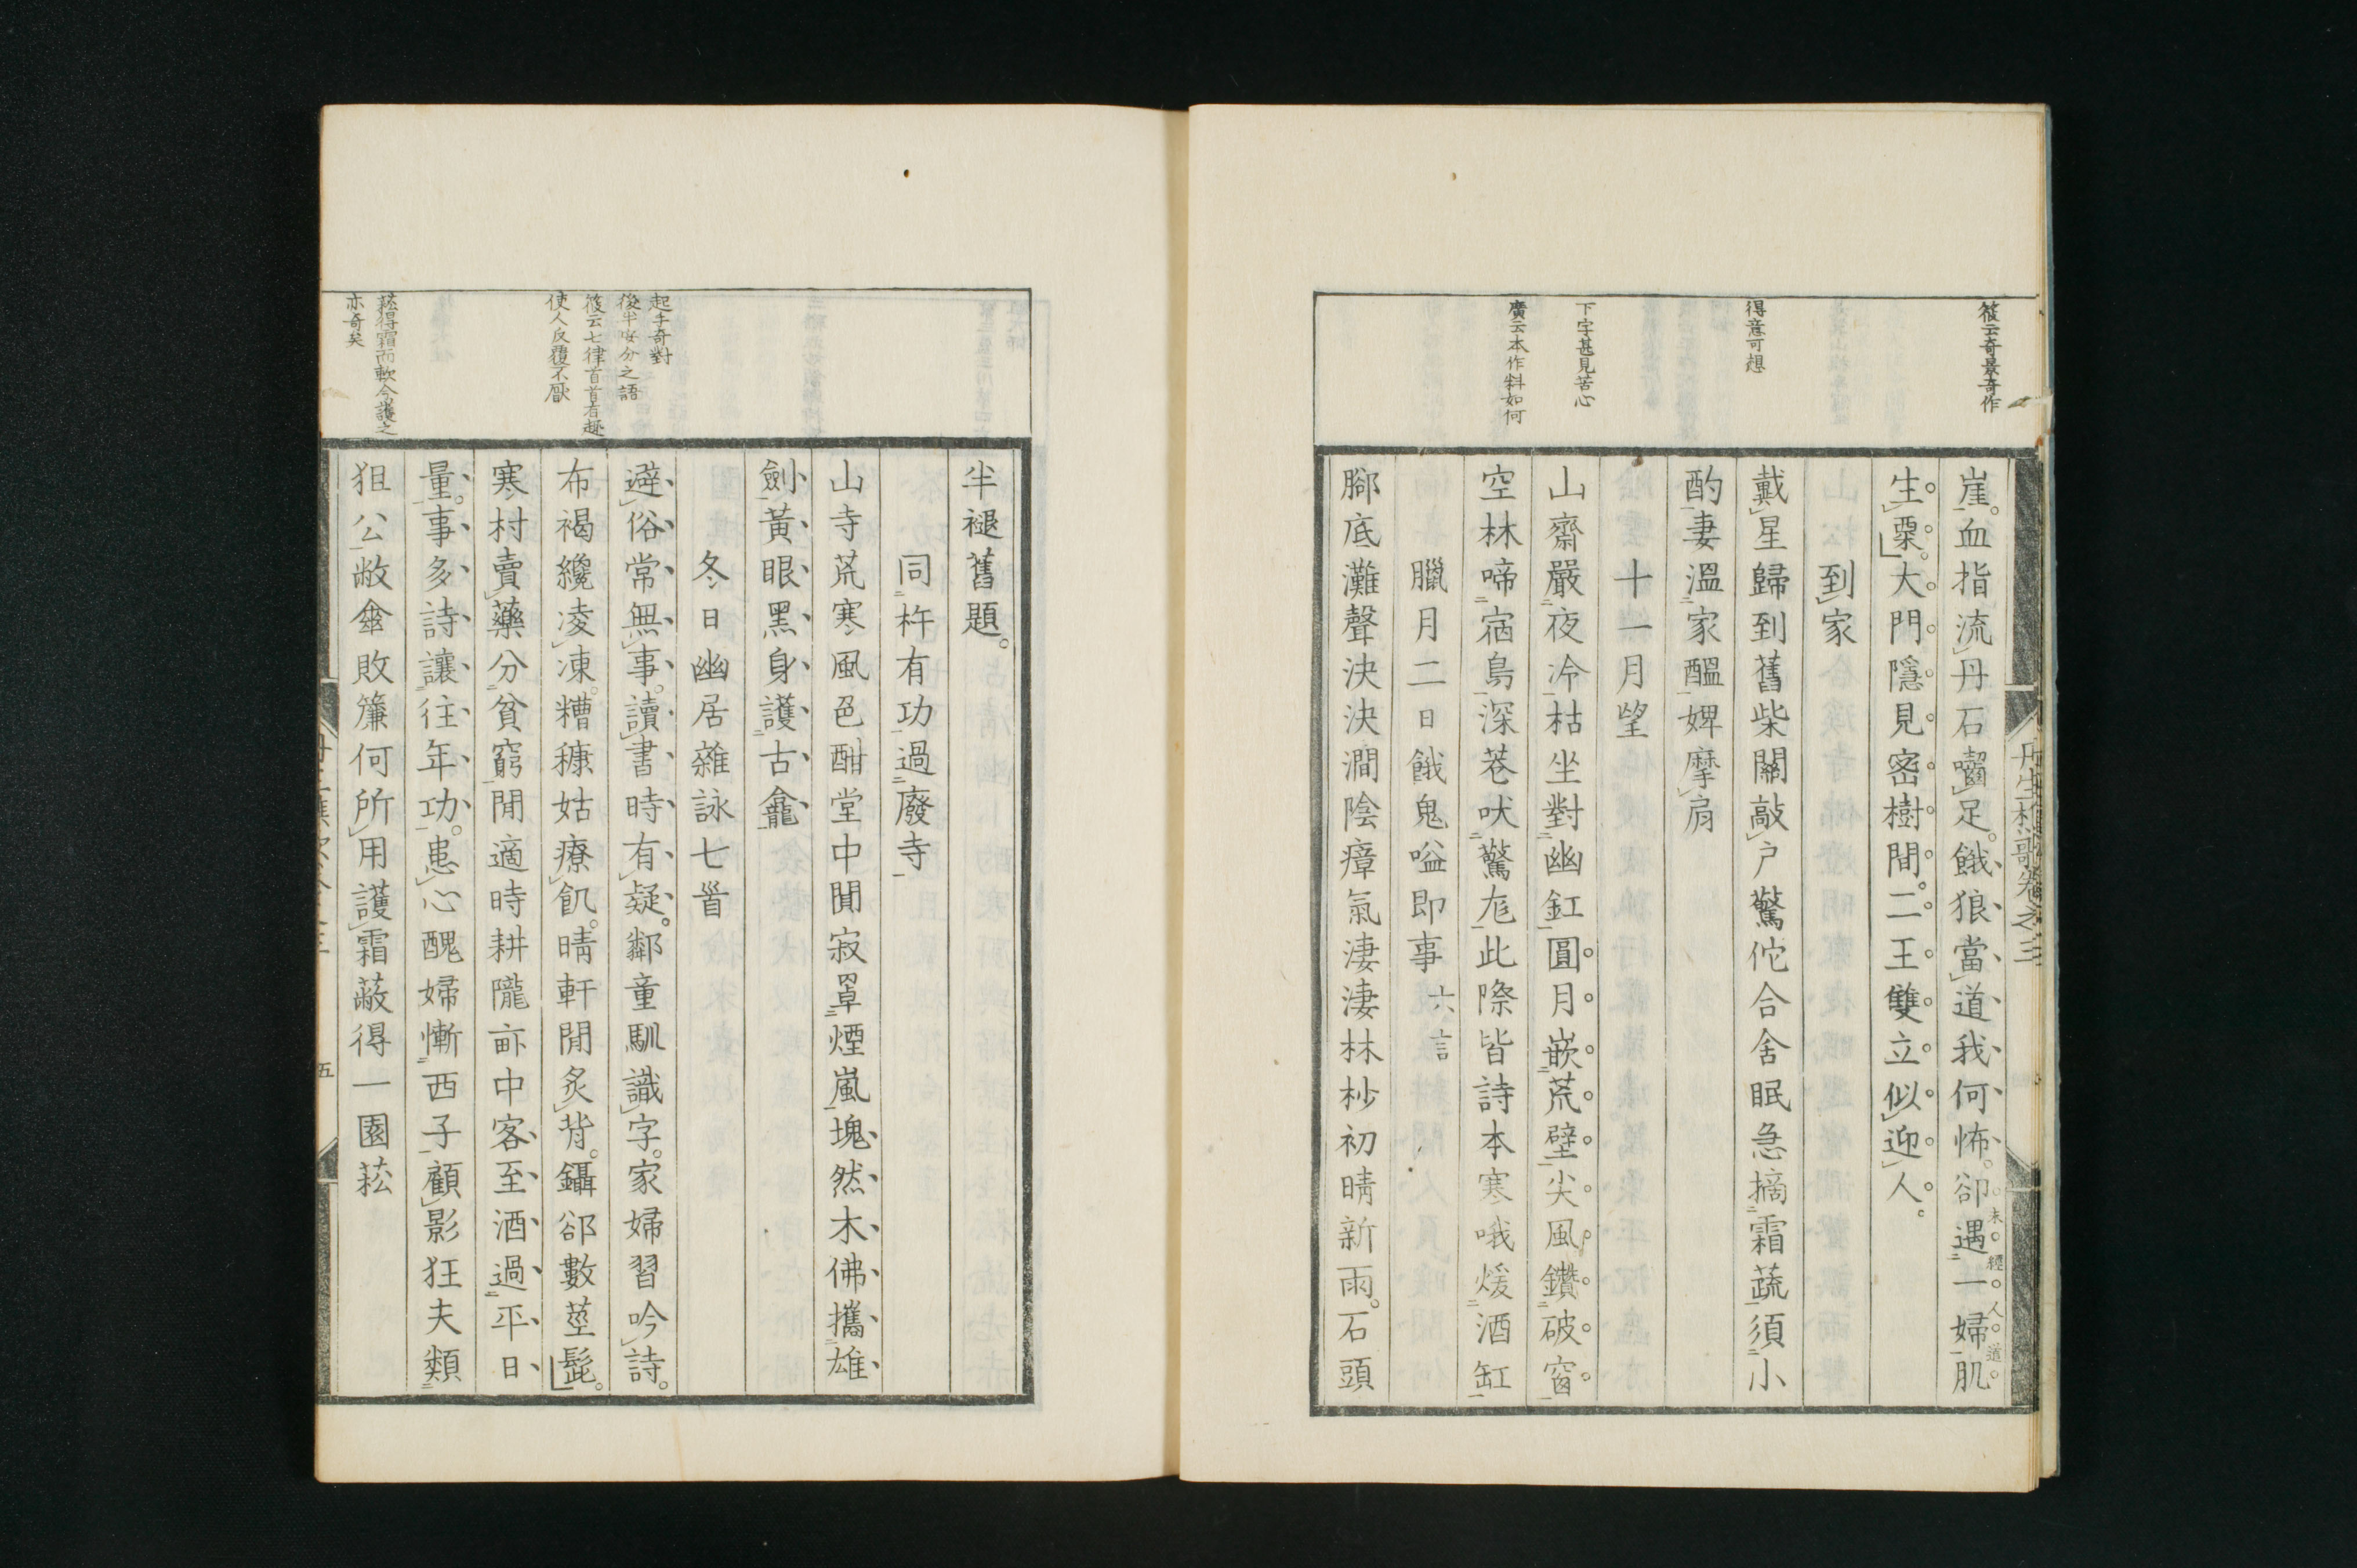 筱云奇景奇作
得意可想
下字甚見苦心
廣云本作料如何
崖血指流丹石齧足餓狼當道我何怖卻遇一婦肌
未經人道
生粟大門隱見密樹間二王雙立似迎人
到家
戴星歸到舊柴關敲戶驚佗合舍眠急摘霜蔬須小
酌妻溫家醞婢摩肩
十一月望
山齋嚴夜冷枯坐對幽釭圓月嵌荒壁尖風鑽破窗
空林啼宿鳥深巷吠驚尨此際皆詩本寒哦煖酒缸
臘月二日餓鬼嗌即事六言
腳底灘聲決決澗陰瘴氣淒淒林杪初晴新雨石頭
丹生樵歌卷之三
起手奇對
後半安分之語
筱云七律首首有趣
使人反覆不厭
菘得霜而軟今護之
亦奇矣
半褪舊題
同杵有功過廢寺
山寺荒寒風色酣堂中閴寂罩煙嵐塊然木佛攜雄
劍黃眼黑身護古龕
冬日幽居雜詠七首
避俗常無事讀書時有疑鄰童馴識字家婦習吟詩
布褐纔凌凍糟糠姑療飢晴軒閒炙背鑷卻數莖髭
寒村賣藥分貧窮閒適時耕隴畝中客至酒過平日
量事多詩讓往年功患心醜婦慚西子顧影狂夫類
狙公敝傘敗簾何所用護霜蔽得一園菘
五